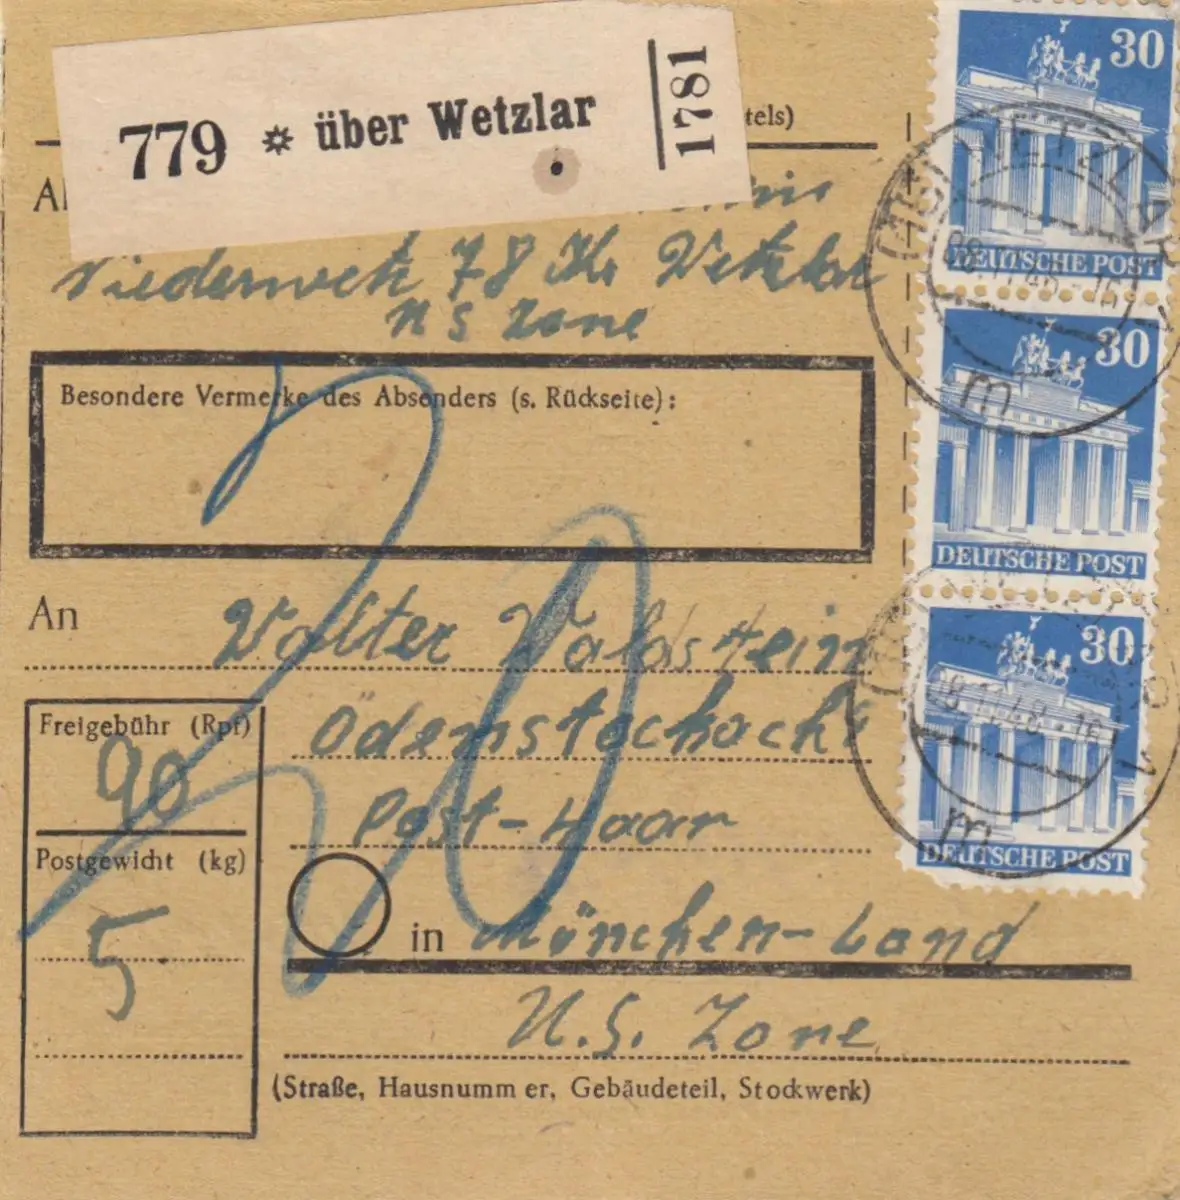 779 * über Wetzlar
1781
tels)
Niederwetz 78 Kr. Wetzlar
US Zone
Besondere Vermerke des Absenders (s. Rückseite):
An Walter Waldstein
Ödenstockach
Post-Haar
in München-Land
U.S. Zone
(Straße, Hausnummer, Gebäudeteil, Stockwerk)
Freigebühr (Rpf)
90
Postgewicht (kg)
5
30
DEUTSCHE POST
30
DEUTSCHE POST
30
DEUTSCHE POST
WETZLAR
08.11.48-16
m
08.11.48-16
m